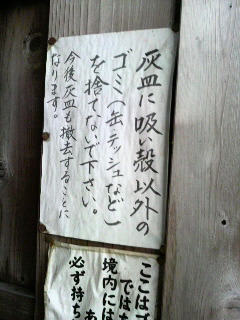 灰皿に吸い殻以外の
ゴミ(缶・テッシュなど)
を捨てないで下さい。
今後灰皿も撤去することに
なります。
ここはゴ
ではあ
境内には
必ず持ち